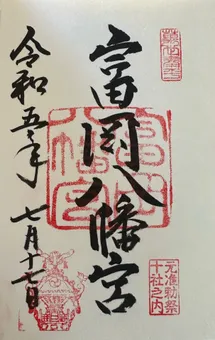 富岡八幡宮
令和五年
七月十七日
富岡八幡宮
元准勅祭
十社之内